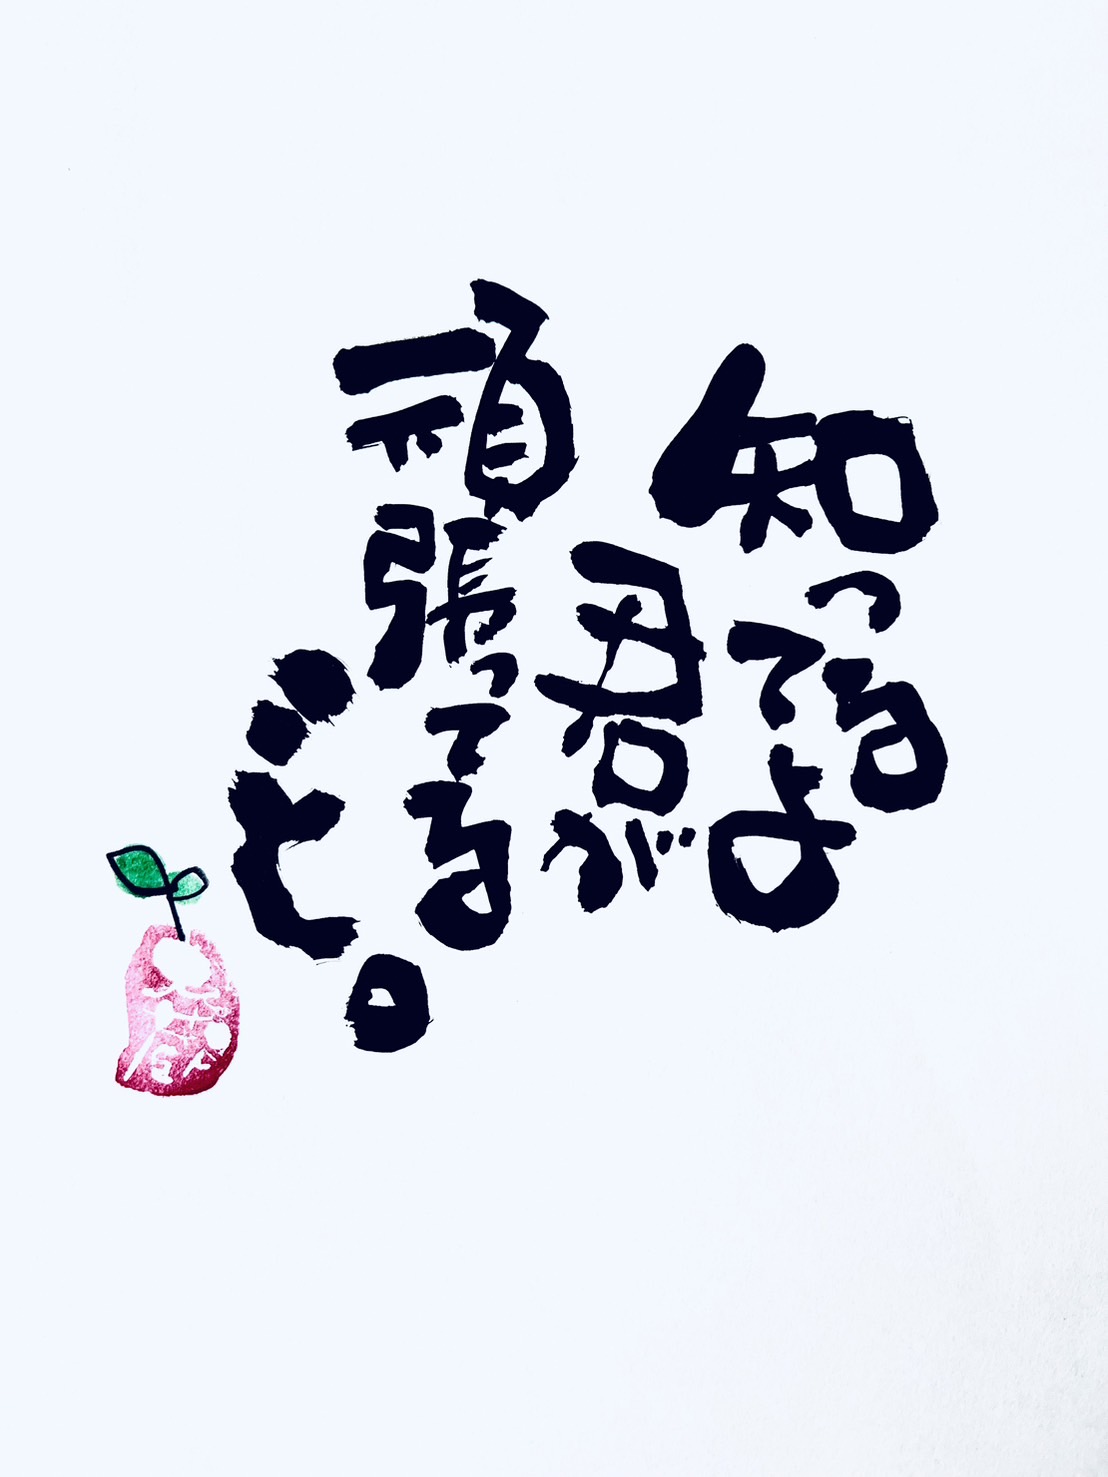 知ってるよ
君が
頑張ってる
こと。